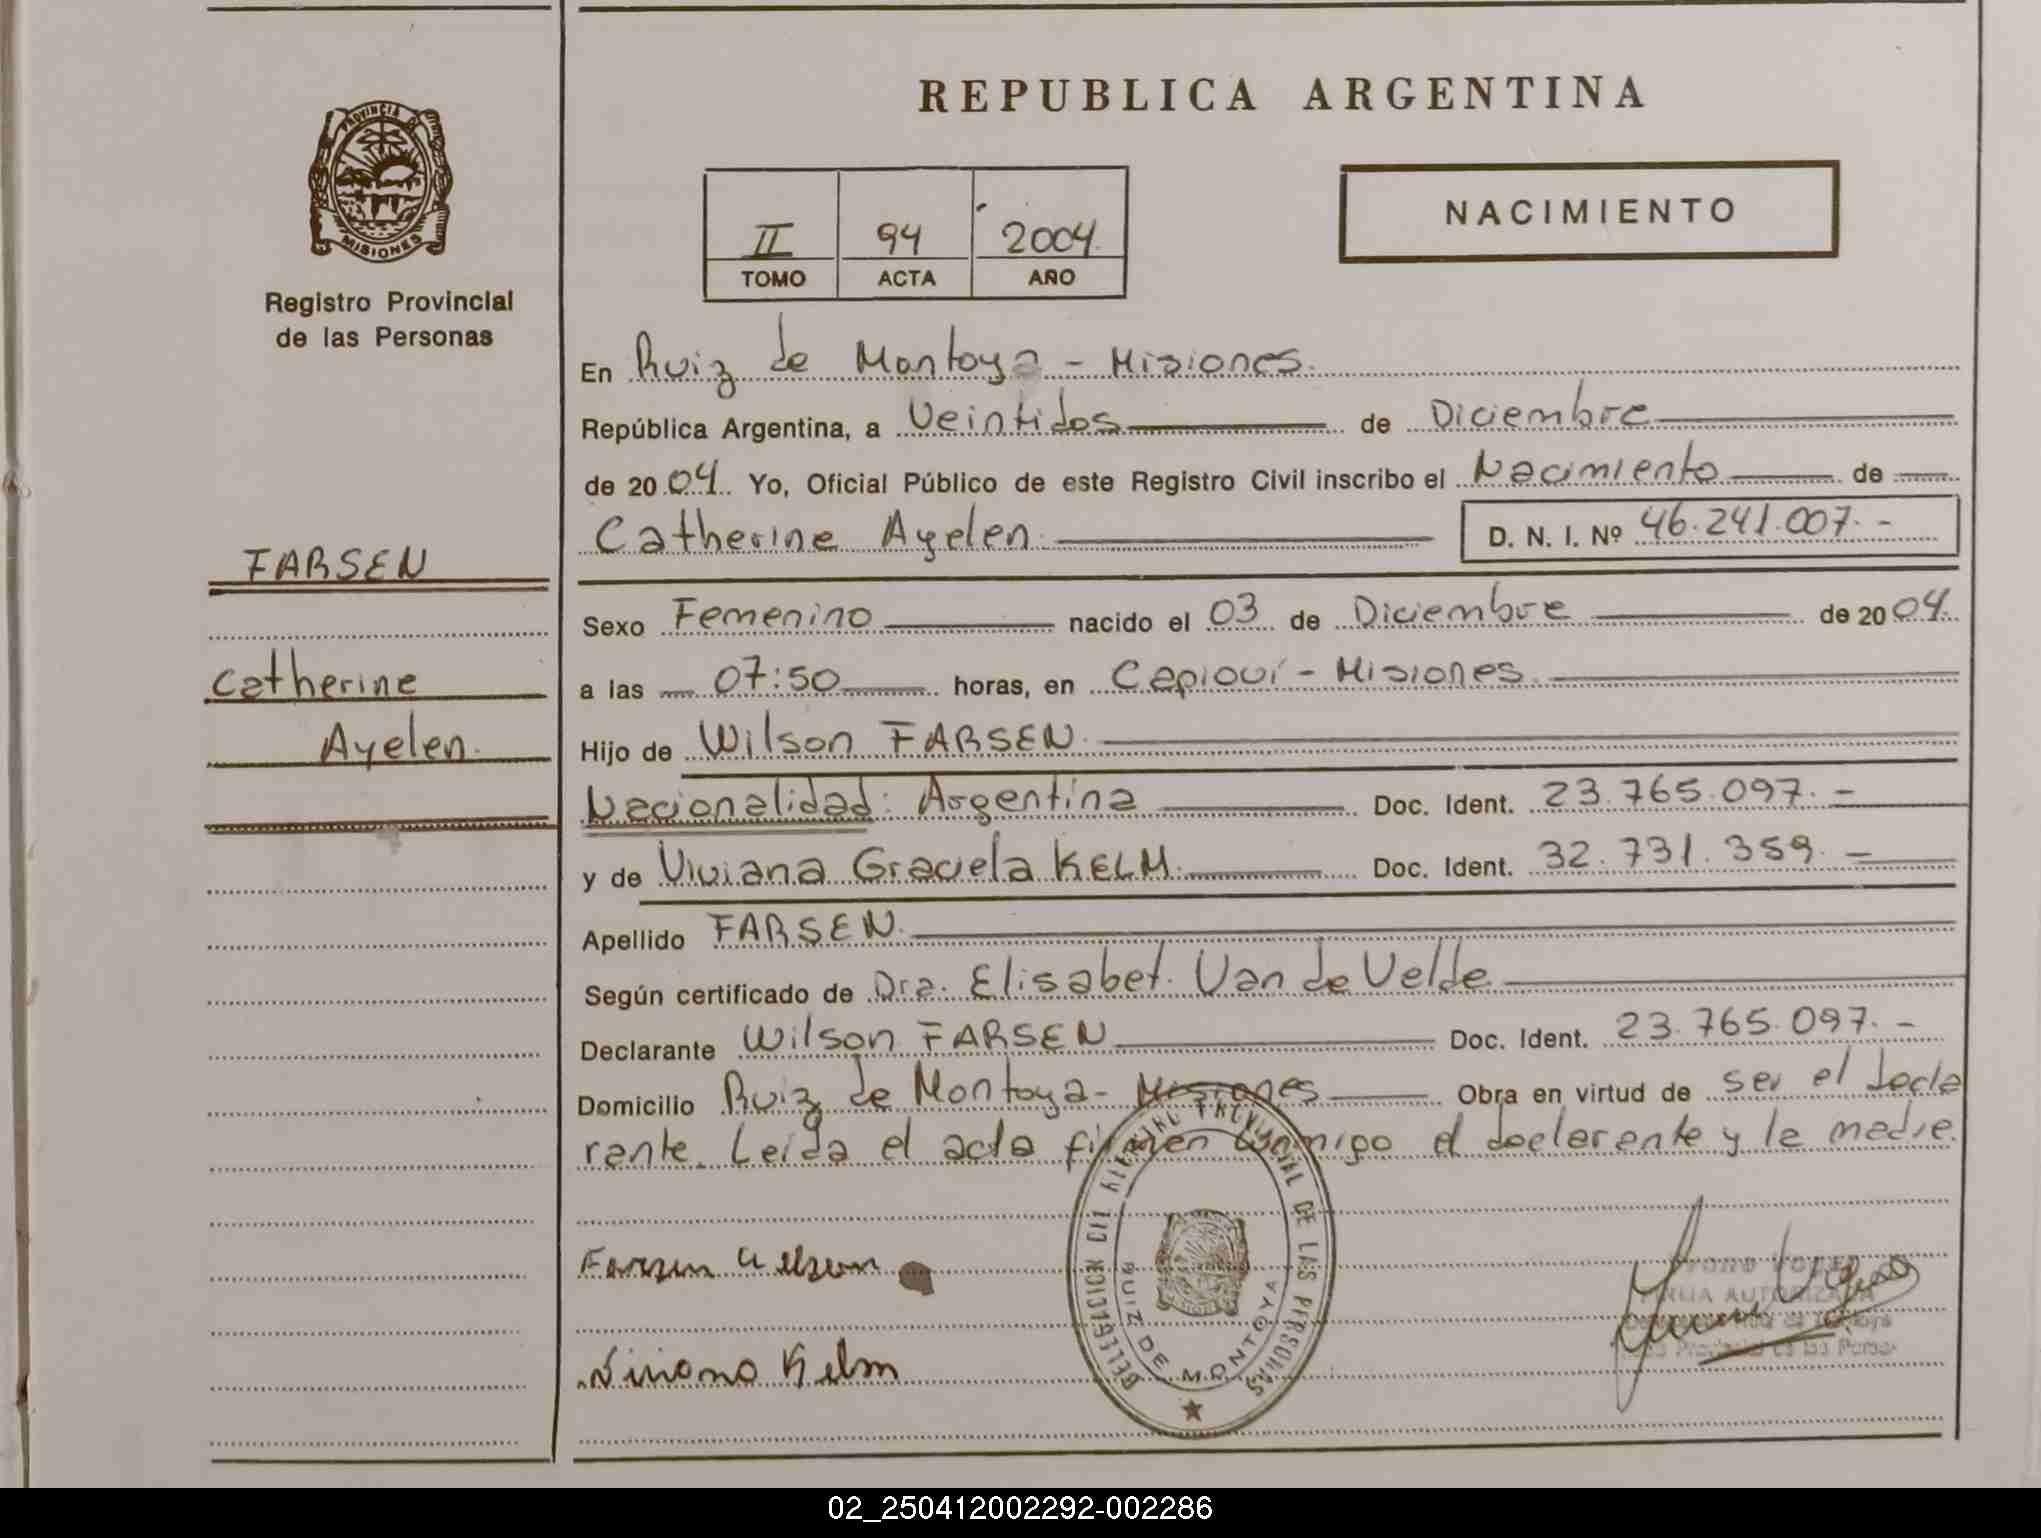 REPUBLICA ARGENTINA
PROVINCIA DE
MISIONES
Registro Provincial
de las Personas
NACIMIENTO
II 94 2004
TOMO ACTA AÑO
En Ruiz de Montoya - Misiones.
República Argentina, a Veintidos de Diciembre
de 2004. Yo, Oficial Público de este Registro Civil inscribo el Nacimiento de
Catherine Ayelen. D. N. I. Nº 46.241.007.-
FARSEN
Catherine
Ayelen.
Sexo Femenino nacido el 03 de Diciembre de 2004.
a las 07:50 horas, en Capioví - Misiones.
Hijo de Wilson FARSEN.
Nacionalidad: Argentina Doc. Ident. 23.765.097.-
y de Viviana Graciela KELM. Doc. Ident. 32.731.359.-
Apellido FARSEN.
Según certificado de Dra. Elisabet Van de Velde
Declarante Wilson FARSEN Doc. Ident. 23.765.097.-
Domicilio Ruiz de Montoya - Misiones Obra en virtud de ser el decla
rante. Leída el acta firman conmigo el declarante y la madre.
DELEGACION DEL REGISTRO PROVINCIAL DE LAS PERSONAS
RUIZ DE MONTOYA
Farsen Wilson
Viviana Kelm
FIRMA AUTORIZADA
02_250412002292-002286